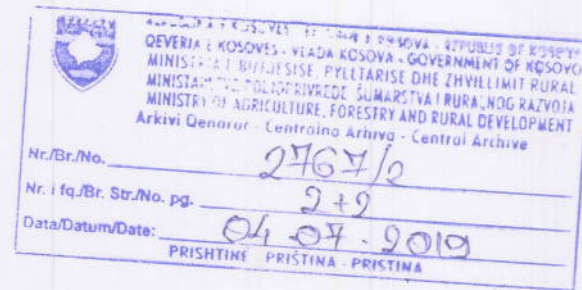 REPUBLIKA E KOSOVËS - REPUBLIKA KOSOVA - REPUBLIC OF KOSOVO
QEVERIA E KOSOVËS - VLADA KOSOVA - GOVERNMENT OF KOSOVO
MINISTRIA E BUJQËSISË, PYLLTARISË DHE ZHVILLIMIT RURAL
MINISTARSTVO POLJOPRIVREDE ŠUMARSTVA I RURALNOG RAZVOJA
MINISTRY OF AGRICULTURE, FORESTRY AND RURAL DEVELOPMENT
Arkivi Qendror - Centralna Arhiva - Central Archive
Nr./Br./No. 2767/2
Nr. i fq./Br. Str./No. pg. 2+2
Data/Datum/Date: 04-07-2019
PRISHTINË PRIŠTINA - PRISTINA